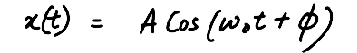 x(t) = A Cos(ω₀t + ϕ)